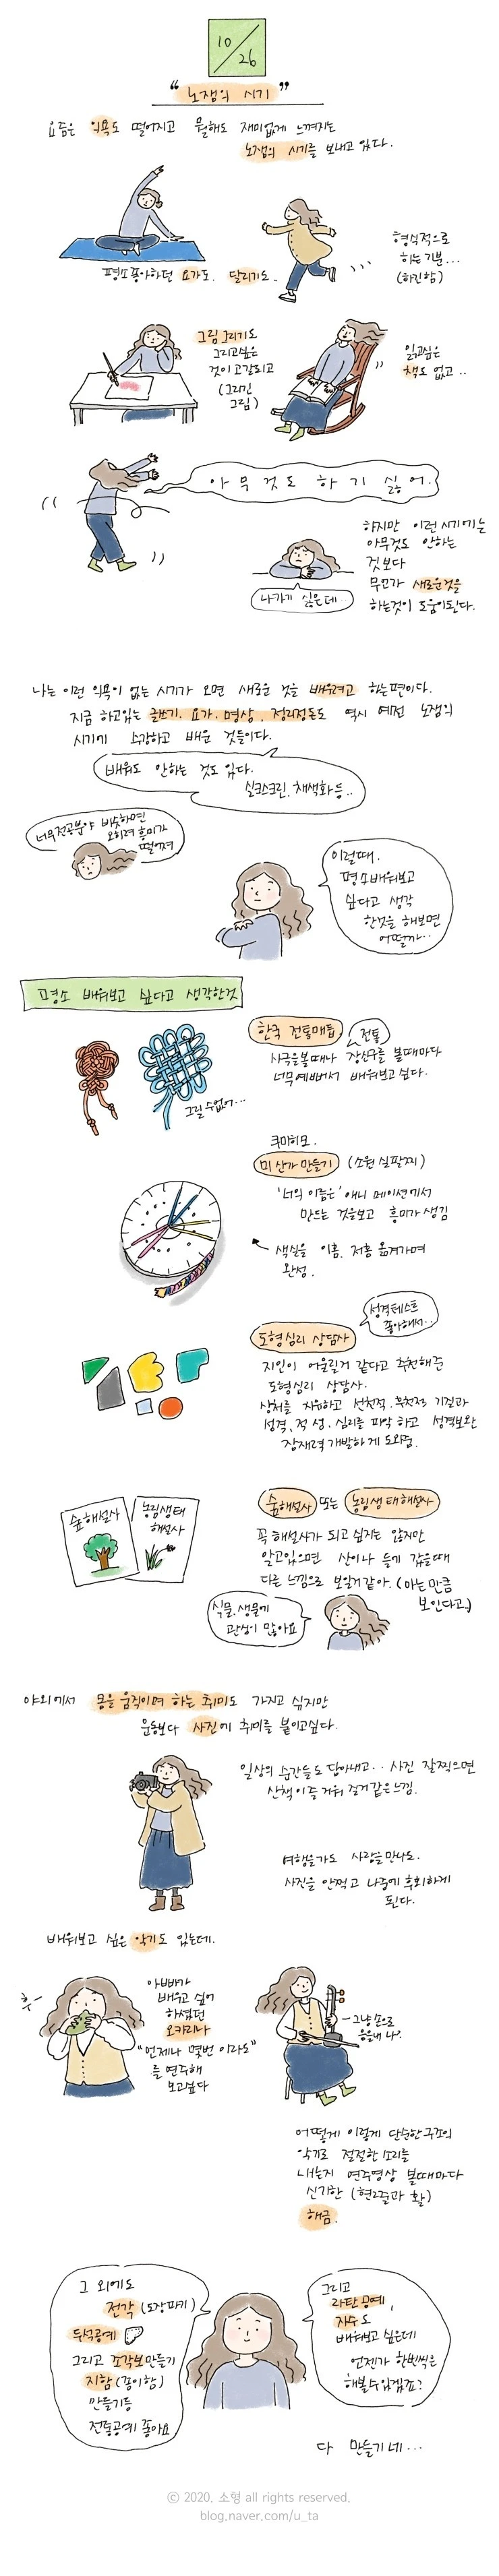 10/26
"노잼의 시기"
요즘은 의욕도 떨어지고 뭘해도 재미없게 느껴지는
노잼의 시기를 보내고 있다.
평소 좋아하던 요가도. 달리기도.
형식적으로
하는 기분...
(하긴함)
그림그리기도
그리고싶은
것이 고갈되고
(그리긴
그림)
읽고싶은
책도 없고..
아무것도 하기 싫어.
하지만 이런 시기에는
아무것도 안하는
것보다
무언가 새로운것을
하는것이 도움이된다.
나가기 싫은데..
나는 이런 의욕이 없는 시기가 오면 새로운 것을 배우려고 하는편이다.
지금 하고있는 글쓰기. 요가. 명상, 정리정돈도 역시 예전 노잼의
시기에 수강하고 배운 것들이다.
배워도 안하는 것도 있다.
실크스크린. 채색화 등..
너무전공분야 비슷하면
오히려 흥미가
떨어져
이럴때.
평소배워보고
싶다고 생각
한것을 해보면
어떨까..
평소 배워보고 싶다고 생각한것
한국 전통매듭.
전통
사극을볼때나 장신구를 볼때마다
너무예뻐서 배워보고싶다.
그릴수없어...
쿠미히모.
미산가 만들기 (소원 실팔찌)
'너의 이름은' 애니메이션에서
만드는 것을보고 흥미가 생김
색실을 이홈. 저홈 옮겨가며
완성.
성격테스트
좋아해서..
도형심리 상담사
지인이 어울릴거 같다고 추천해준
도형심리 상담사.
상처를 치유하고 선천적. 후천적 기질과
성격, 적성, 심리를 파악하고 성격보완
잠재력 개발하게 도와줌.
숲해설사
농림생태
해설사
숲해설사 또는 농림생태해설사
꼭 해설사가 되고 싶지는 않지만
알고있으면 산이나 들에 갔을때
다른 느낌으로 보일거같아. (아는만큼
보인다고..)
식물, 생물에
관심이 많아요
야외에서 몸을 움직이며 하는 취미도 가지고 싶지만
운동보다 사진에 취미를 붙이고싶다.
일상의 순간들도 담아내고.. 사진 잘찍으면
산책이 즐거워 질거같은느낌.
여행을가도 사람을만나도.
사진을 안찍고 나중에 후회하게
된다.
배워보고 싶은 악기도 있는데.
후~
아빠가
배우고 싶어
하셨던
오카리나
"언제나 몇번이라도"
를 연주해
보고싶다
그냥손으로
음을내나?
어떻게 이렇게 단순한구조의
악기로 절절한 소리를
내는지 연주영상 볼때마다
신기한 (현2줄과 활)
해금.
그 외에도
전각 (도장파기)
두석공예
그리고 조각보만들기
지함(종이함)
만들기등
전통공예 좋아요
그리고
라탄공예,
자수도
배워보고 싶은데
언젠가 한번씩은
해볼수있겠죠?
다 만들기네...
ⓒ 2020. 소형 all rights reserved.
blog.naver.com/u_ta